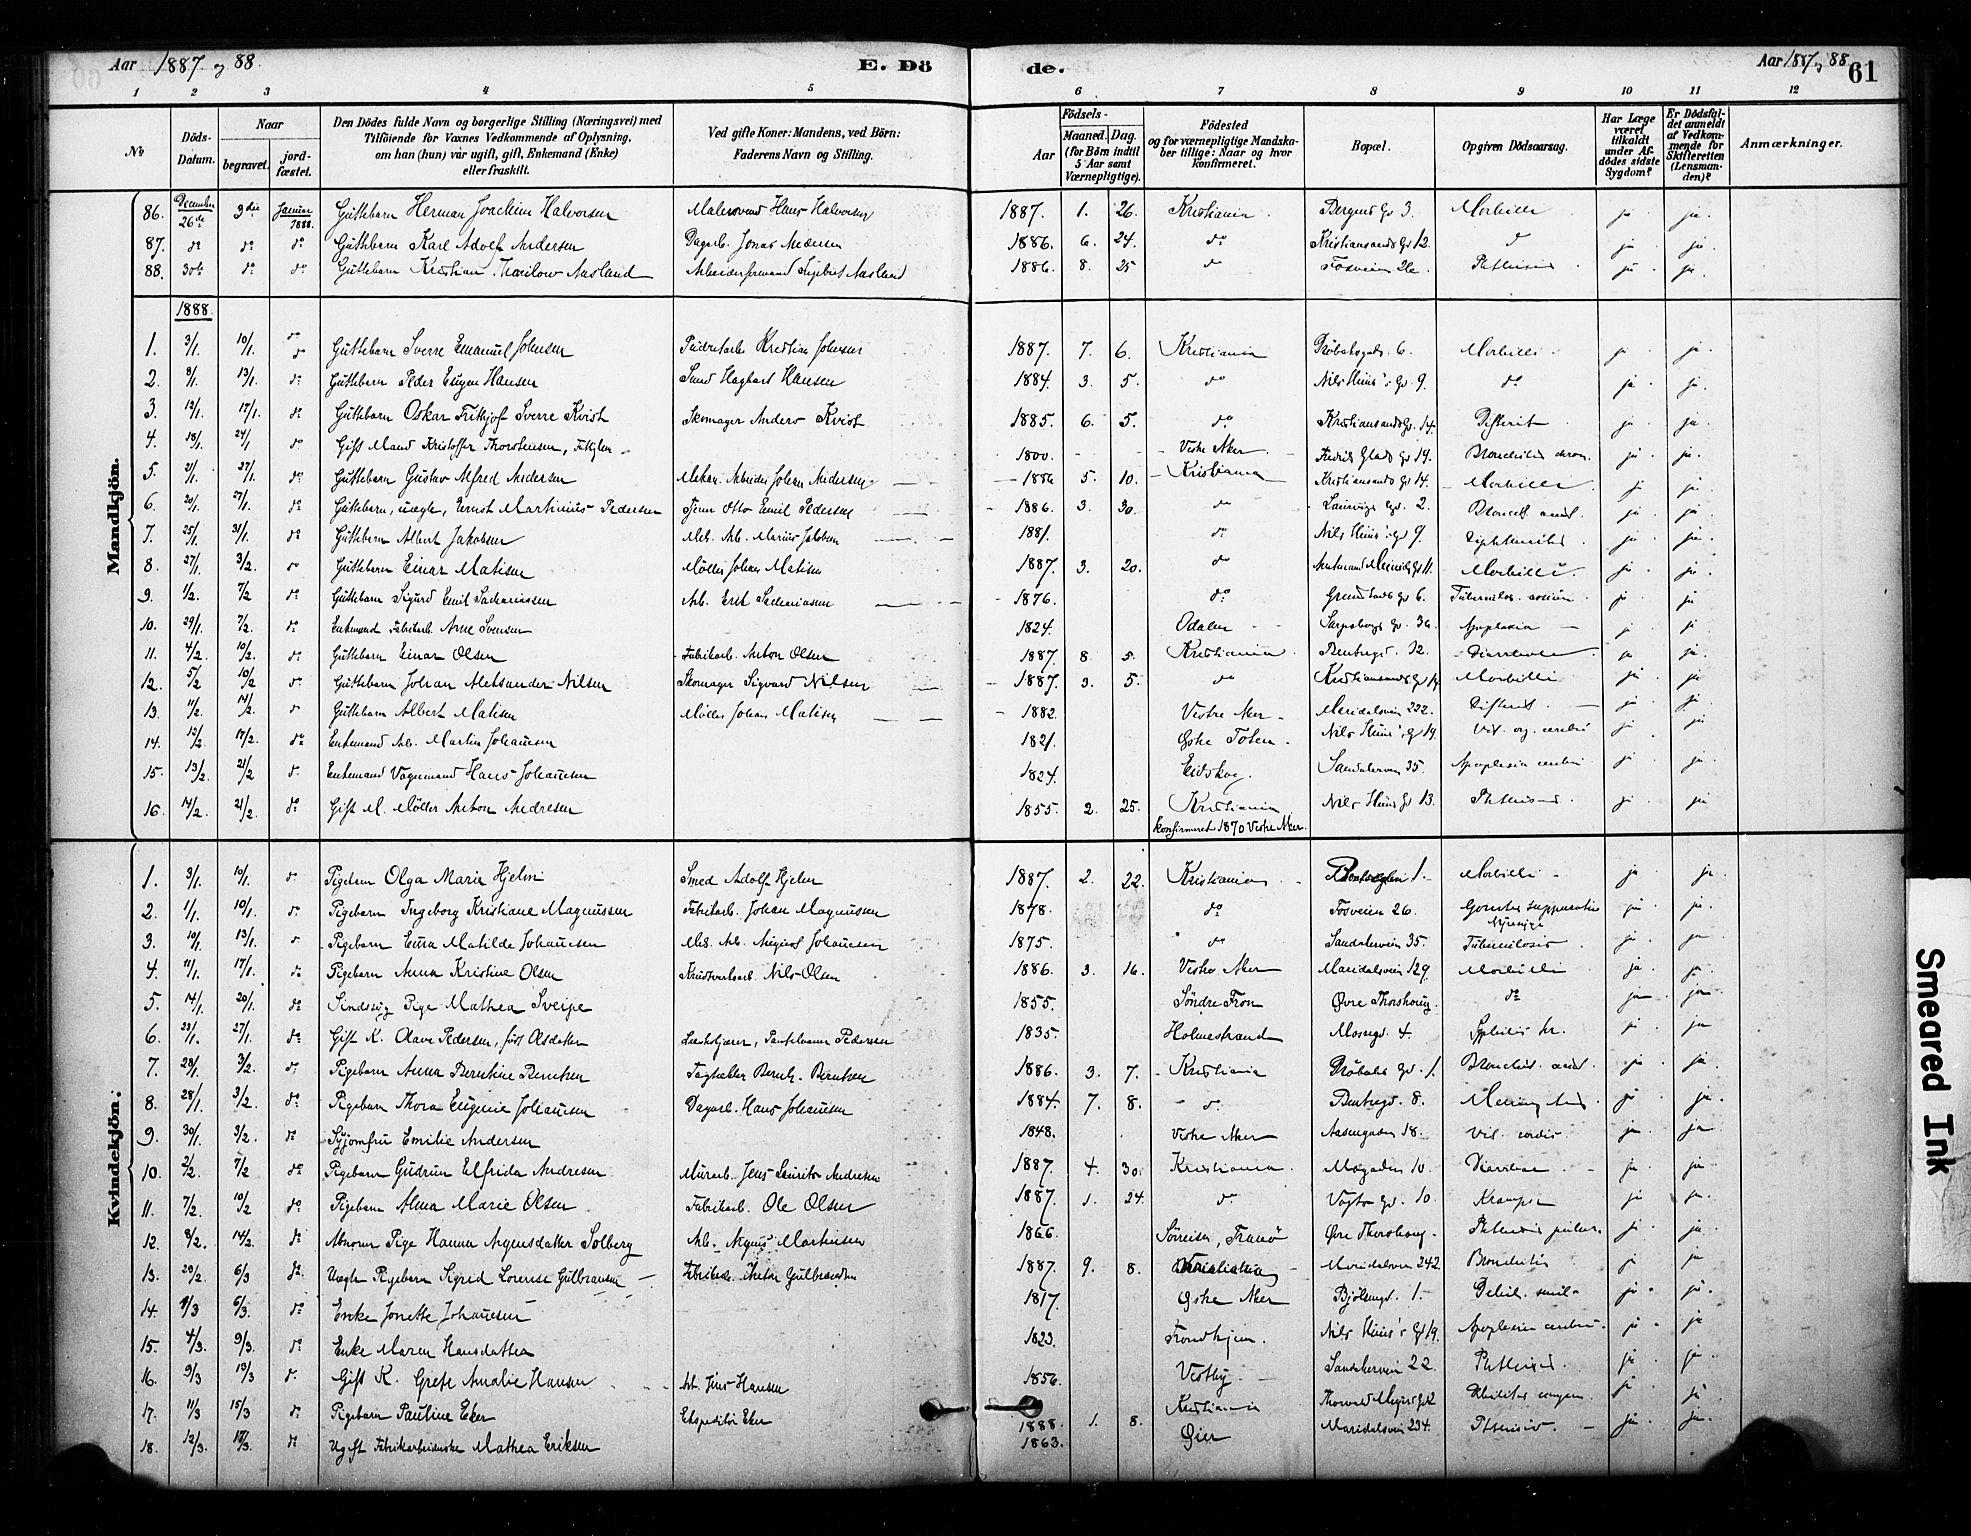 Aar 1887 og 88. E. Dö de. Aar 1887 og 88. 61
1 2 3 4 5 6 7 8 9 10 11 12
No Döds-Datum. Naar begravet. jord-fæstet. Den Dödes fulde Navn og borgerlige Stilling (Næringsvei) med Tilföiende for Voxnes Vedkommende af Oplysning, om han (hun) var ugift, gift, Enkemand (Enke) eller fraskilt. Ved gifte Koner: Mandens, ved Börn: Faderens Navn og Stilling. Födsels- Aar Maaned. Dag. (for Börn indtil 5 Aar samt Værnepligtige). Födested og for værnepligtige Mandskaber tillige: Naar og hvor konfirmeret. Bopæl. Opgiven Dödsaarsag. Har Læge været tilkaldt under Afdödes sidste Sygdom? Er Dödsfaldet anmeldt af Vedkommende for Skifteretten (Lensmanden)? Anmærkninger.
Mandkjön.
86. December 26de 3die Januar 1888. Guttebarn Herman Joachim Halvorsen Malersvend Hans Halvorsen 1887. 1. 26. Kristiania Bergens Gd 3. Morbilli ja ja.
87. do do do Guttebarn Karl Adolf Andersen Dagarb. Jonas Andersen 1886. 6. 24. do Kristiansands Gd 12. do ja ja
88. 30te do do Guttebarn Kristian Harilow Aasland Arbeidsformand Sigbert Aasland 1886. 8. 25 do Fosveien 26. Phthisis ja ja.
1888.
1. 3/1. 10/1. do Guttebarn Sverre Emanuel Johnsen Kristian Johnsen 1887. 7. 6. Kristiania Dröbaksgad. 6. Morbilli ja ja.
2. 8/1. 13/1. do Guttebarn Peder Eugen Hansen Smed Hagbart Hansen 1884. 3. 5. do Nils Huus's Gd 9. do ja ja.
3. 12/1. 17/1. do Guttebarn Oskar Frithjof Sverre Kvist Skomager Anders Kvist 1885. 6. 5. do Kristiansands Gd. 14. Difterit ja ja.
4. 18/1. 24/1 do Gift Mand Kristoffer Thorstensen, 1800. Vestre Aker Fredrik Glads Gd 19. Bronchitis chron. ja ja.
5. 21/1. 27/1. do Guttebarn Gustav Alfred Andersen Mekan. Arbeider Johan Andersen 1886 5. 10. Kristiania Kristiansands Gd 14. Morbilli ja ja.
6. 20/1. 27/1. do Guttebarn, uægte, Ernst Martinius Pedersen Otto Emil Pedersen 1886. 3. 30. do Laurvigs Gd. 2. Bronch. acut. ja ja.
7. 25/1. 31/1. do Guttebarn Albert Jakobsen Mek. Arb. Marius Jakobsen 1881. do Nils Huus's Gd 9. Diphtheritis ja ja.
8. 27/1. 3/2. do Guttebarn Einar Matisen Møller Johan Matisen 1887. 3. 20. do Amtmand Meinichs Gd 11. Morbilli. ja ja.
9. 1/2. 7/2 do Guttebarn Sigurd Emil Sachariassen Arb. Erik Sachariasen 1876. do Grünsbeds Gd 6. ja ja
10. 29/1. 7/2. do Enkemand Fabrikarb. Arne Svensen 1824. Odalen Sarpsborgs Gd. 36. Apoplexia ja ja.
11. 4/2. 10/2. do Guttebarn Einar Olsen Fabrikarb. Anton Olsen 1887 8. 5. Kristiania Bentsegd. 12. ja ja.
12. 5/2 10/2 do Guttebarn Johan Aleksander Nilsen Skomager Sigvard Nilsen 1887. 3. 5. do Kristiansands Gd 14 Morbilli ja ja.
13. 11/2. 14/2. do Guttebarn Albert Matisen Møller Johan Matisen 1882. Vestre Aker Maridalsveien 222. Difterit. ja ja.
14. 12/2. 17/2. do Enkemand Arb. Martin Johansen 1821. Østre Toten Nils Huus's Gd 19. Vit. org. ja ja
15. 13/2. 21/2 do Enkemand Vognmand Hans Johansen 1824. Eidskog. Sandakerveien 35. Apoplexia cerebri ja ja.
16. 14/2. 21/2. do Gift M. Møller Anton Andresen 1855. 2. 25. Kristiania konfirmeret 1870 Vestre Aker. Nils Huus Gd 13. Phthisis ja ja
Kvindekjön.
1. 3/1. 10/1. do Pigebarn Olga Marie Hjelm Smed Adolf Hjelm 1887. 2. 22. Kristiania 1. Morbilli ja ja.
2. 1/1. 10/1. do Pigebarn Ingeborg Kristiane Magnussen Fabrikarb. Johan Magnussen 1878. do Fosveien 26. ja ja.
3. 10/1. 13/1. do Pigebarn Emma Matilde Johansen Mek. Arb. August Johansen 1875. do Sandakerveien 35. Tuberculosis ja ja
4. 11/1. 17/1. do Pigebarn Anna Kristine Olsen Nils Olsen 1886. 3. 16. Vestre Aker Maridalsveien 129. Morbilli ja ja
5. 14/1. 20/1. do Sindssyg Pige Mathea Sveipe 1855. Söndre Fron Øvre Thorshaug. do ja ja
6. 23/1. 27/1. do Gift K. Olave Pedersen, Pedersen 1835. Holmestrand Mossegd. 4. ja ja
7. 28/1. 3/2. do Pigebarn Anna Berntine Berntsen Tagtækker Bernh. Berntsen 1886. 3. 7. Kristiania Dröbaks Gd. 1. Bronchit. acut. ja ja.
8. 28/1. 3/2. do Pigebarn Thora Eugenie Johansen Dagarb. Hans Johansen 1884. 7. 8. do Bentsegd. 8. ja ja.
9. 30/1. 3/2. do Syjomfru Emilie Andersen 1848. Vestre Aker Aasengaden 18. Vit. cordis ja ja
10. 2/2. 7/2 do Pigebarn Gudrun Elfrida Andresen Murarb. Jens Lauritz Andresen 1887. 4. 30. Kristiania 10. Diarrhoe ja ja
11. 7/2. 10/2 do Pigebarn Alma Marie Olsen Fabrikarb. Ole Olsen 1887. 1. 24. do Vogts Gd. 10. Kramper ja ja.
12. 8/2. 14/2. do Pige Hanna Solberg Arb. Martinsen 1866. Sörreisen, Tranö Øvre Thorshaug. ja ja.
13. 29/2. 6/3 do Uægte Pigebarn Sigrid Lovise Gulbransen Fabrikarb. Gulbrandsen 1887. 9. 8. Kristiania Maridalsveien 242. Bronchitis ja ja
14. 1/3 6/3. do Enke Jonette Johansen 1817. Østre Aker Bjölsengd. 1. Debil. senil. ja ja.
15. 4/3. 9/3. do Enke Maren Hansdatter 1823. Trondhjem. Nils Huus's Gd 19. Apoplexia cerebri. ja ja
16. 9/3 13/3 do Gift K. Grete Amalie Hansen Arb. Jens Hansen 1856. Vestby. Sandakerveien 22. Phthisis. ja ja.
17. 11/3 15/3 do Pigebarn Pauline Eker Ekspeditör Eker 1888. 1. 8. Kristiania Thorvald Meyers Gd 2 ja ja
18. 12/3. 17/3. do Ugift Fabrikarbeiderske Mathea Eriksen 1863. Øier Maridalsveien 234. Phthisis ja ja.
Smeared Ink